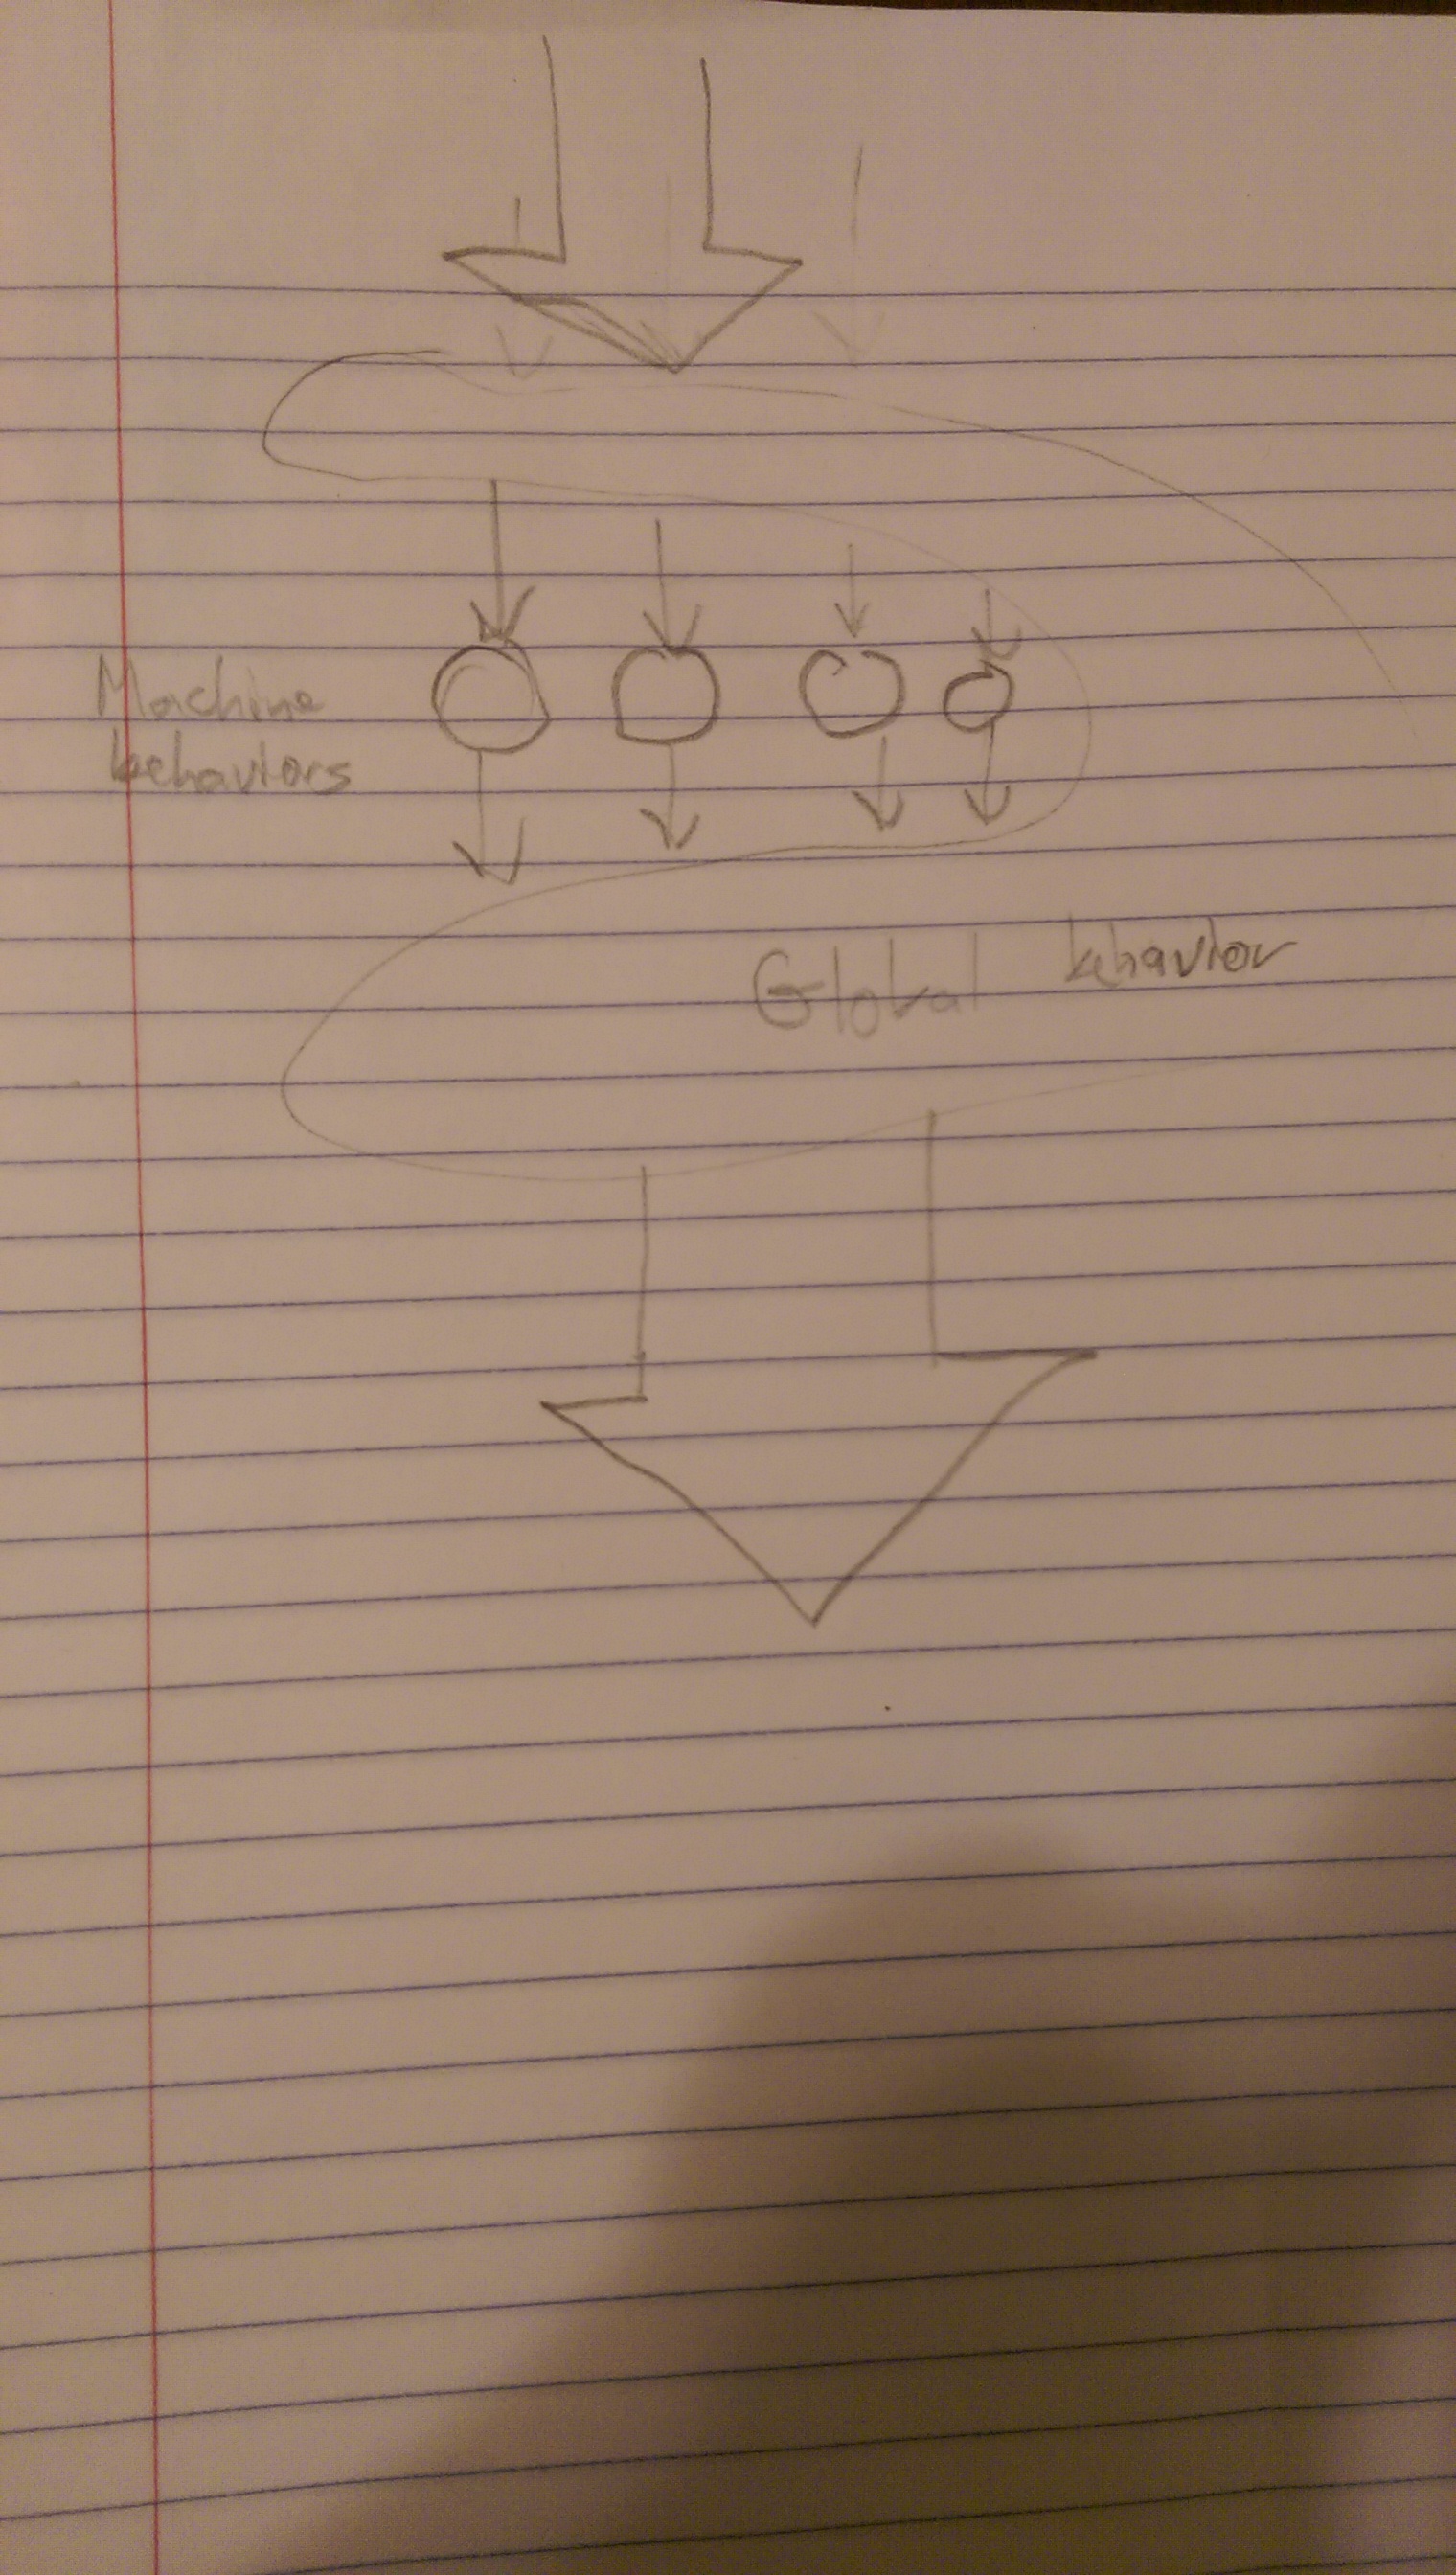 Machine
behaviors
Global behavior